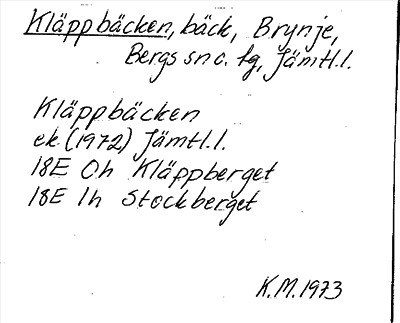 Kläppbäcken, bäck, Brynje,
Bergs sn o. tg, Jämtl.l.
Kläppbäcken
ek. (1972) Jämtl.l.
18E 0h Kläppberget
18E 1h Stockberget
K.M. 1973